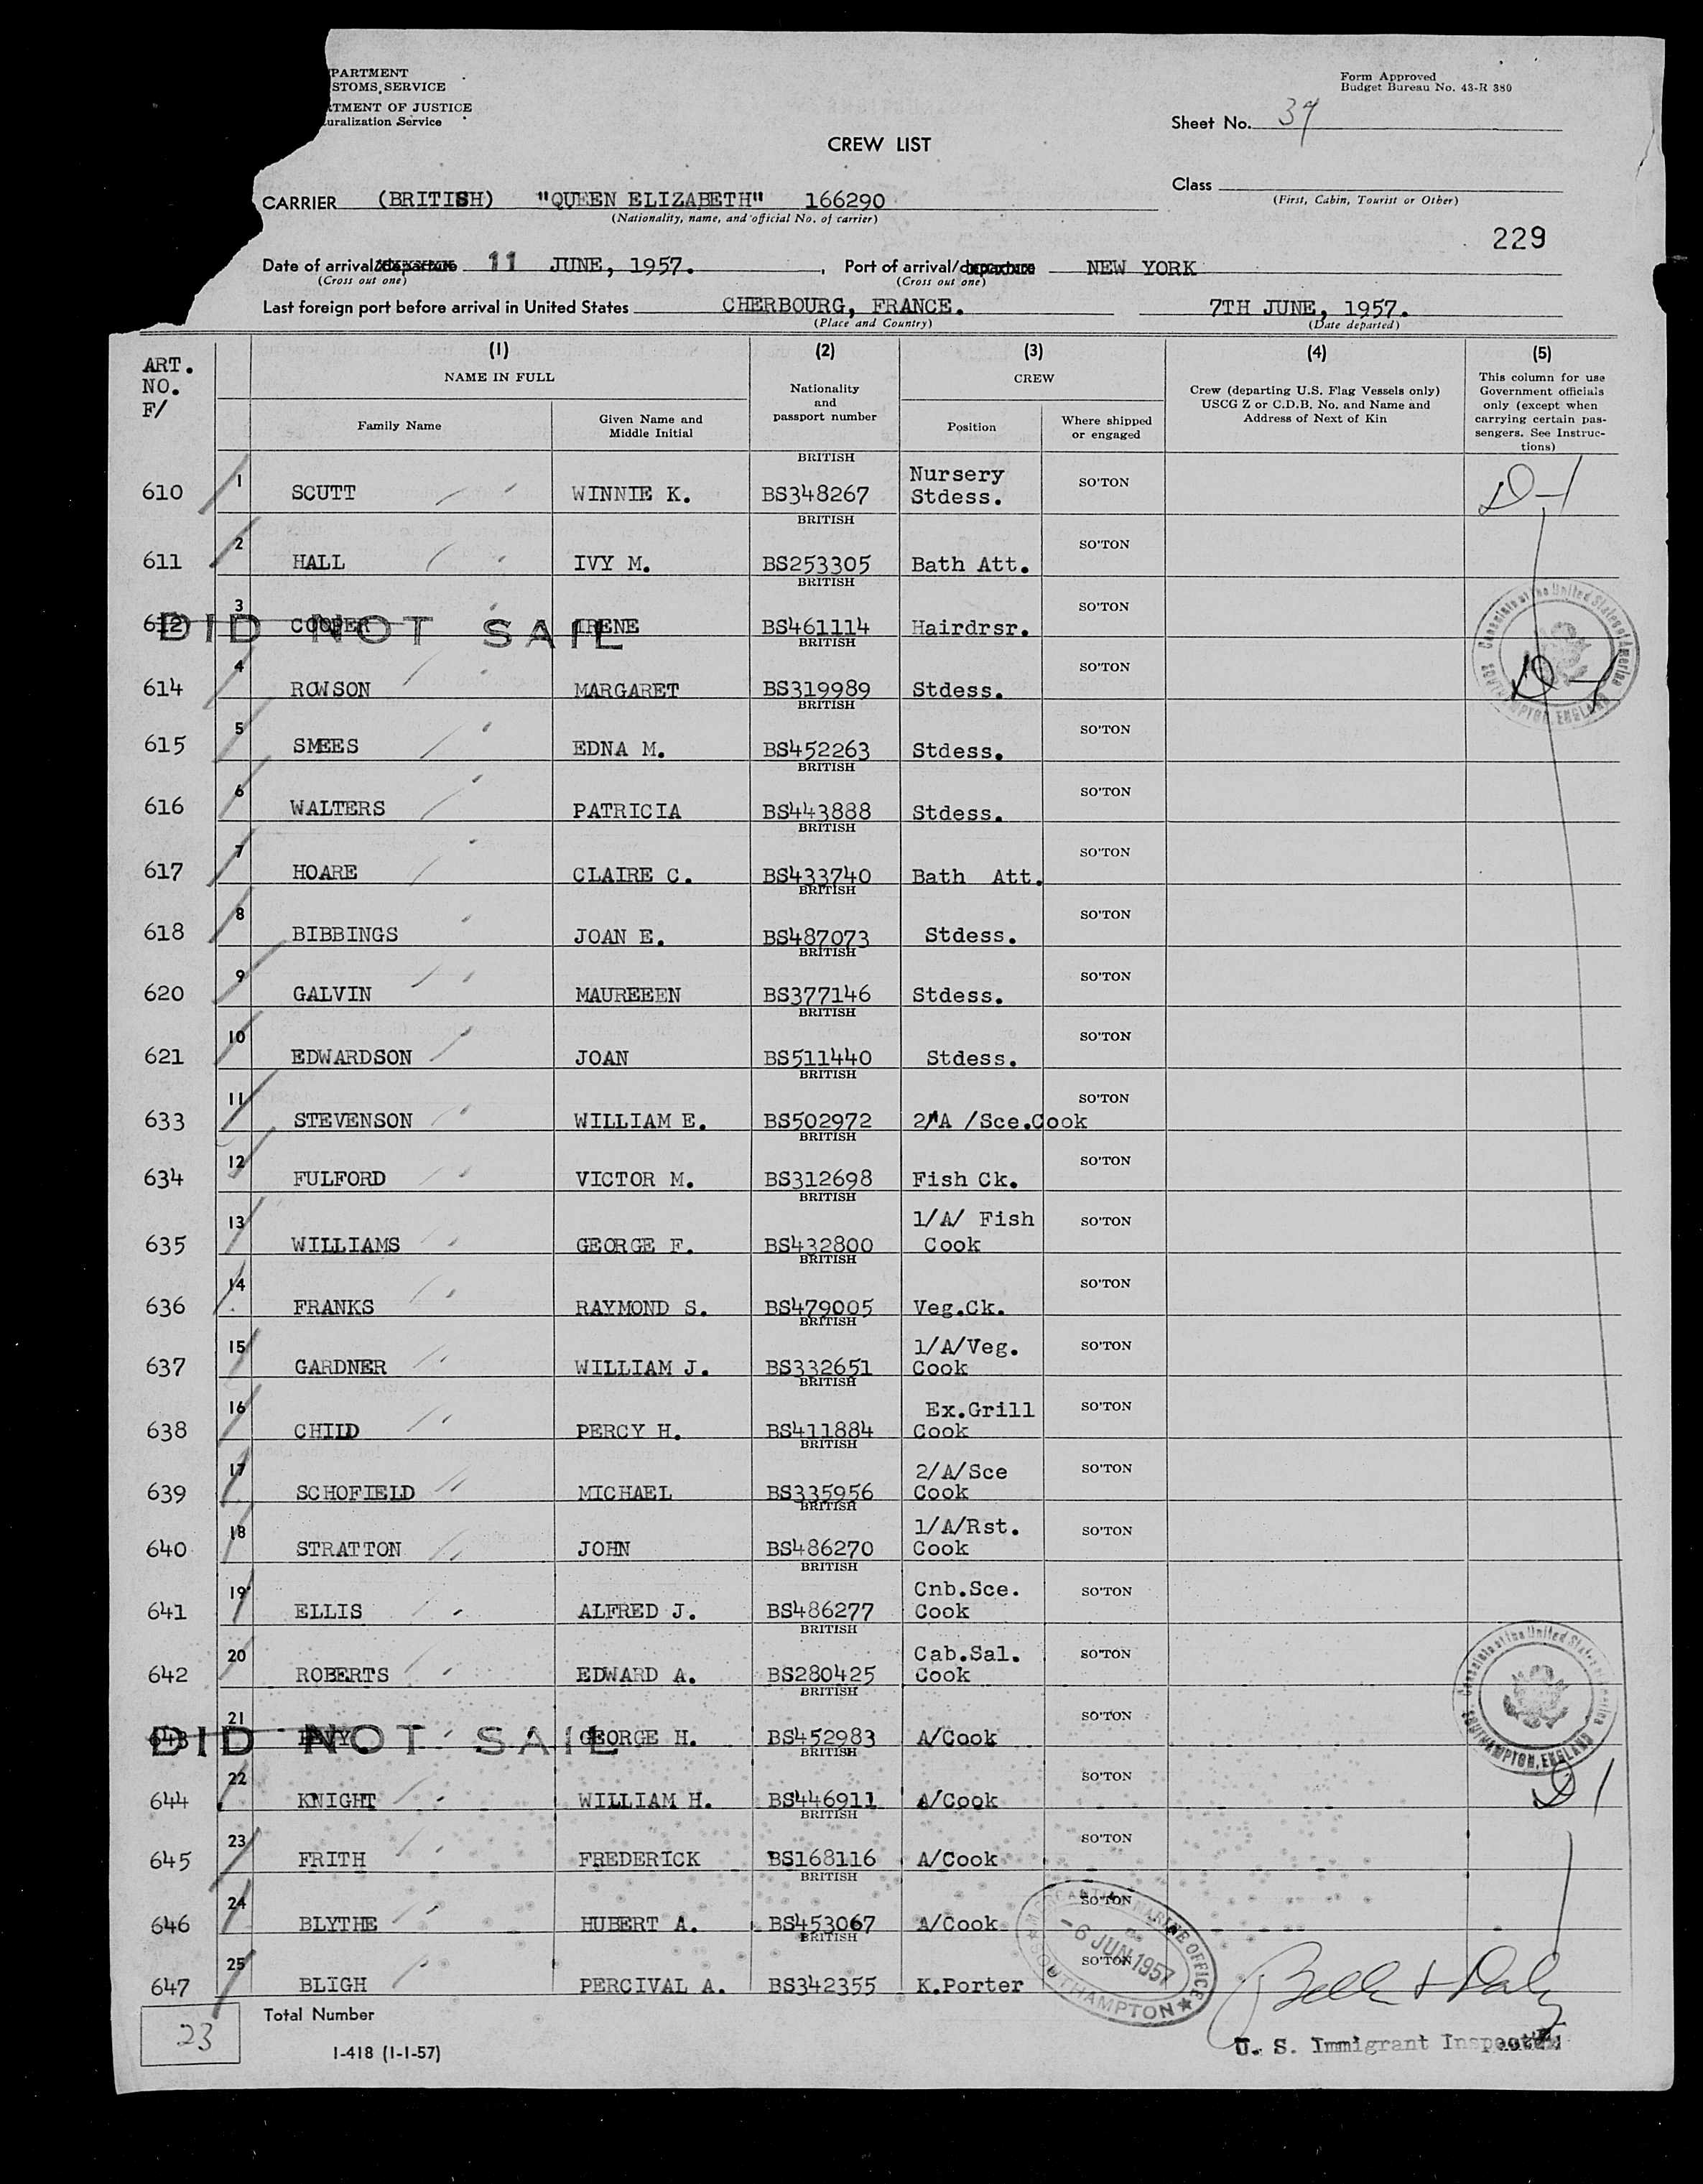 PARTMENT
STOMS SERVICE
TMENT OF JUSTICE
uralization Service
Form Approved
Budget Bureau No. 43-R 380
Sheet No.
CREW LIST
Class
(First, Cabin, Tourist or Other)
CARRIER (BRITISH) "QUEEN ELIZABETH" 166290
(Nationality, name, and official No. of carrier)
229
Date of arrival/departure 11 JUNE, 1957. , Port of arrival/departure NEW YORK
(Cross out one) (Cross out one)
Last foreign port before arrival in United States CHERBOURG, FRANCE. 7TH JUNE, 1957.
(Place and Country) (Date departed)
ART.
NO.
F/
(1) (2) (3) (4) (5)
NAME IN FULL
Family Name
Given Name and
Middle Initial
Nationality
and
passport number
CREW
Position
Where shipped
or engaged
Crew (departing U.S. Flag Vessels only)
USCG Z or C.D.B. No. and Name and
Address of Next of Kin
This column for use
Government officials
only (except when
carrying certain pas-
sengers. See Instruc-
tions)
BRITISH
610 1 SCUTT WINNIE K. BS348267 Nursery Stdess. SO'TON D-1
BRITISH
611 2 HALL IVY M. BS253305 Bath Att. SO'TON
BRITISH
612 3 COOPER IRENE BS461114 Hairdrsr. SO'TON
DID NOT SAIL
Consulate of the United States of America
SOUTHAMPTON, ENGLAND
BRITISH
614 4 ROWSON MARGARET BS319989 Stdess. SO'TON D-1
BRITISH
615 5 SMEES EDNA M. BS452263 Stdess. SO'TON
BRITISH
616 6 WALTERS PATRICIA BS443888 Stdess. SO'TON
BRITISH
617 7 HOARE CLAIRE C. BS433740 Bath Att. SO'TON
BRITISH
618 8 BIBBINGS JOAN E. BS487073 Stdess. SO'TON
BRITISH
620 9 GALVIN MAUREEEN BS377146 Stdess. SO'TON
BRITISH
621 10 EDWARDSON JOAN BS511440 Stdess. SO'TON
BRITISH
633 11 STEVENSON WILLIAM E. BS502972 2/A /Sce.Cook SO'TON
BRITISH
634 12 FULFORD VICTOR M. BS312698 Fish Ck. SO'TON
BRITISH
635 13 WILLIAMS GEORGE F. BS432800 1/A/ Fish Cook SO'TON
BRITISH
636 14 FRANKS RAYMOND S. BS479005 Veg.Ck. SO'TON
BRITISH
637 15 GARDNER WILLIAM J. BS332651 1/A/Veg. Cook SO'TON
BRITISH
638 16 CHILD PERCY H. BS411884 Ex.Grill Cook SO'TON
BRITISH
639 17 SCHOFIELD MICHAEL BS335956 2/A/Sce Cook SO'TON
BRITISH
640 18 STRATTON JOHN BS486270 1/A/Rst. Cook SO'TON
BRITISH
641 19 ELLIS ALFRED J. BS486277 Cnb.Sce. Cook SO'TON
BRITISH
642 20 ROBERTS EDWARD A. BS280425 Cab.Sal. Cook SO'TON
Consulate of the United States of America
SOUTHAMPTON, ENGLAND
BRITISH
643 21 GEORGE H. BS452983 A/Cook SO'TON
DID NOT SAIL
BRITISH
644 22 KNIGHT WILLIAM H. BS446911 A/Cook SO'TON D 1
BRITISH
645 23 FRITH FREDERICK BS168116 A/Cook SO'TON
BRITISH
646 24 BLYTHE HUBERT A. BS453067 A/Cook SO'TON
BRITISH
647 25 BLIGH PERCIVAL A. BS342355 K.Porter SO'TON
MERCANTILE MARINE OFFICE
-6 JUN 1957
SOUTHAMPTON
23 Total Number
I-418 (1-1-57)
U. S. Immigrant Inspector